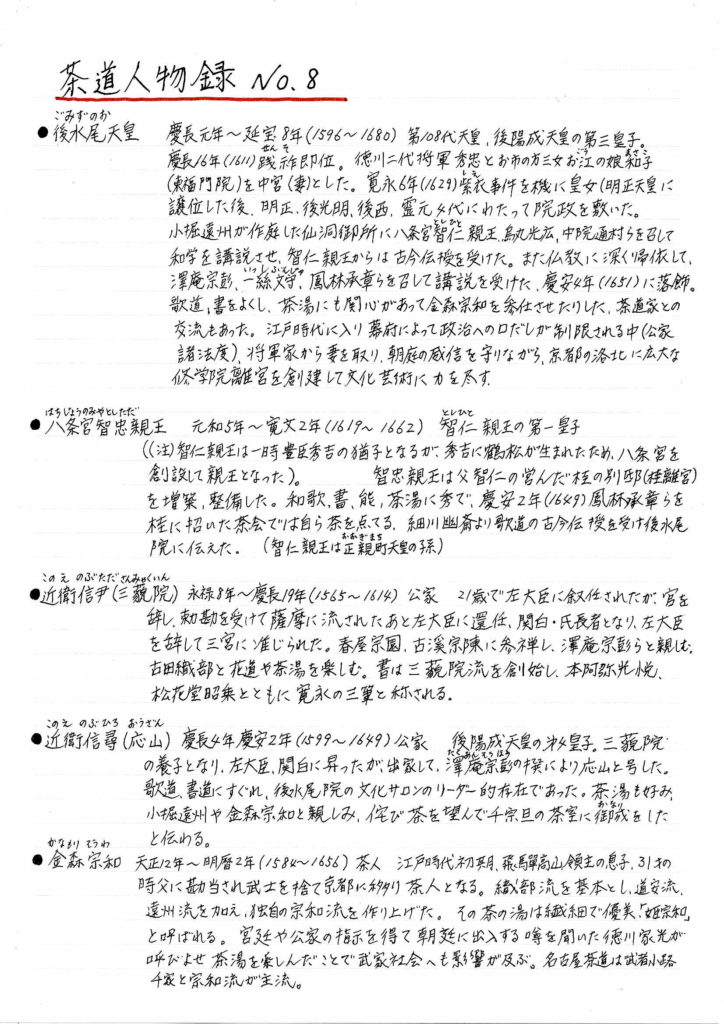 茶道人物録 No.8
ごみずのお
●後水尾天皇 慶長元年〜延宝8年(1596〜1680) 第108代天皇、後陽成天皇の第三皇子。
せんそ ごう まさこ
慶長16年(1611)践祚即位。徳川二代将軍秀忠とお市の方三女お江の娘和子
しえ
(東福門院)を中宮(妻)とした。寛永6年(1629)紫衣事件を機に皇女(明正天皇に
譲位した後、明正、後光明、後西、霊元4代にわたって院政を敷いた。
としひと
小堀遠州が作庭した仙洞御所に八条宮智仁親王、烏丸光広、中院通村らを召して
和学を講説させ、智仁親王からは古今伝授を受けた。また仏教に深く帰依して、
いっしぶんしゅ
澤庵宗彭、一絲文守、鳳林承章らを召して講説を受けた、慶安4年(1651)に落飾。
歌道、書をよくし、茶湯にも関心があって金森宗和を参任させたりした、茶道家との
交流もあった。江戸時代に入り幕府によって政治への口だしが制限される中(公家
諸法度)、将軍家から妻を取り、朝庭の威信を守りながら、京都の洛北に広大な
修学院離宮を創建して文化芸術に力を尽す.
はちじょうのみやとしただ
●八条宮智忠親王 元和5年〜寛文2年(1619〜1662) 智仁親王の第一皇子
としひと
((注)智仁親王は一時豊臣秀吉の猶子となるが、秀吉に鶴松が生まれたため、八条宮を
創設して親王となった)。 智忠親王は父智仁の営んだ桂の別邸(桂離宮)
を増築、整備した。和歌、書、能、茶湯に秀で、慶安2年(1649)鳳林承章らを
桂に招いた茶会では自ら茶を点てる、細川幽斎より歌道の古今伝授を受け後水尾
おおぎまち
院に伝えた。(智仁親王は正親町天皇の孫)
このえ のぶただ さんみゃくいん
●近衛信尹(三藐院) 永禄8年〜慶長19年(1565〜1614) 公家 21歳で左大臣に叙任されたが、官を
辞し、勅勘を受けて薩摩に流されたあと左大臣に還任、関白・氏長者となり、左大臣
を辞して三宮に准じられた。春屋宗園、古溪宗陳に参禅し、澤庵宗彭らと親しむ。
古田織部と花道や茶湯を楽しむ。書は三藐院流を創始し、本阿弥光悦、
松花堂昭乗とともに寛永の三筆と称される。
このえ のぶひろ おうざん
●近衛信尋(応山) 慶長4年慶安2年(1599〜1649) 公家 後陽成天皇の第4皇子。三藐院
たくあんそうほう
の養子となり、左大臣、関白に昇ったが、出家して、澤庵宗彭の撰により応山と号した。
歌道、書道にすぐれ、後水尾院の文化サロンのリーダー的存在であった。茶湯も好み、
おなり
小堀遠州や金森宗和と親しみ、侘び茶を望んで千宗旦の茶室に御成をした
と伝わる。
かなもり そうわ
●金森宗和 天正12年〜明暦2年(1584〜1656) 茶人 江戸時代初期、飛騨高山領主の息子、31才の
時父に勘当され武士を捨て京都に移り茶人となる。織部流を基本とし、道安流、
遠州流を加え、独自の宗和流を作り上げた。その茶の湯は繊細で優美、「姫宗和」
と呼ばれる。宮廷や公家の指示を得て朝廷に出入する噂を聞いた徳川家光が
呼びよせ茶湯を楽しんだことで武家社会へも影響が及ぶ。名古屋茶道は武者小路
千家と宗和流が主流。